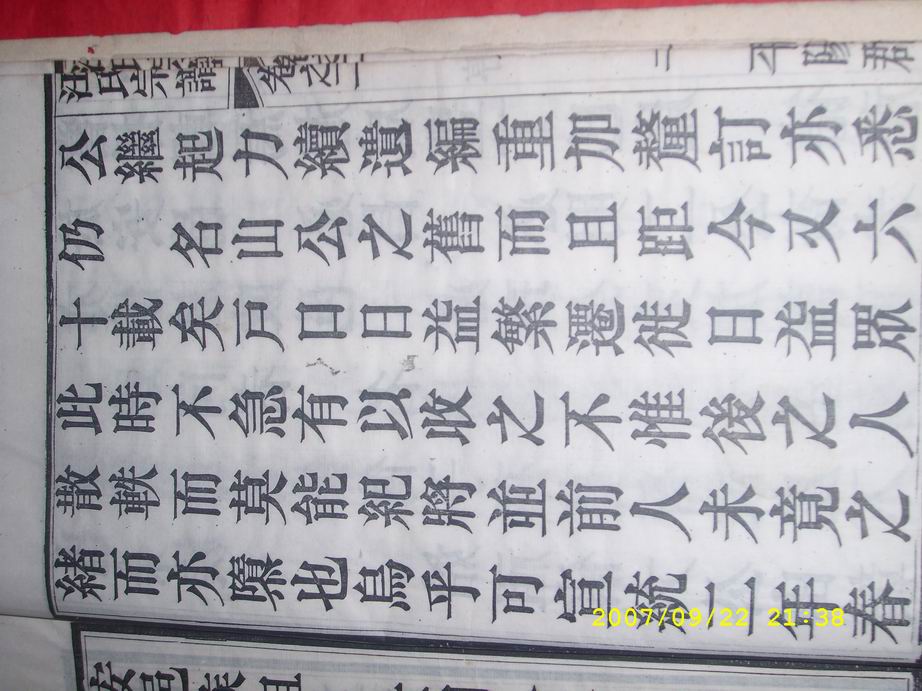 汪氏宗譜 卷之 平陽郡
公繼起力續遺編重加釐訂亦悉
仍 名山公之舊而且距今又六
十載矣戶口日益繁遷徙日益眾
此時不急有以收之不惟後之人
散軼而莫能紀將並前人未竟之
緒而亦隳也烏乎可宣統二年春
2007/09/22 21:38